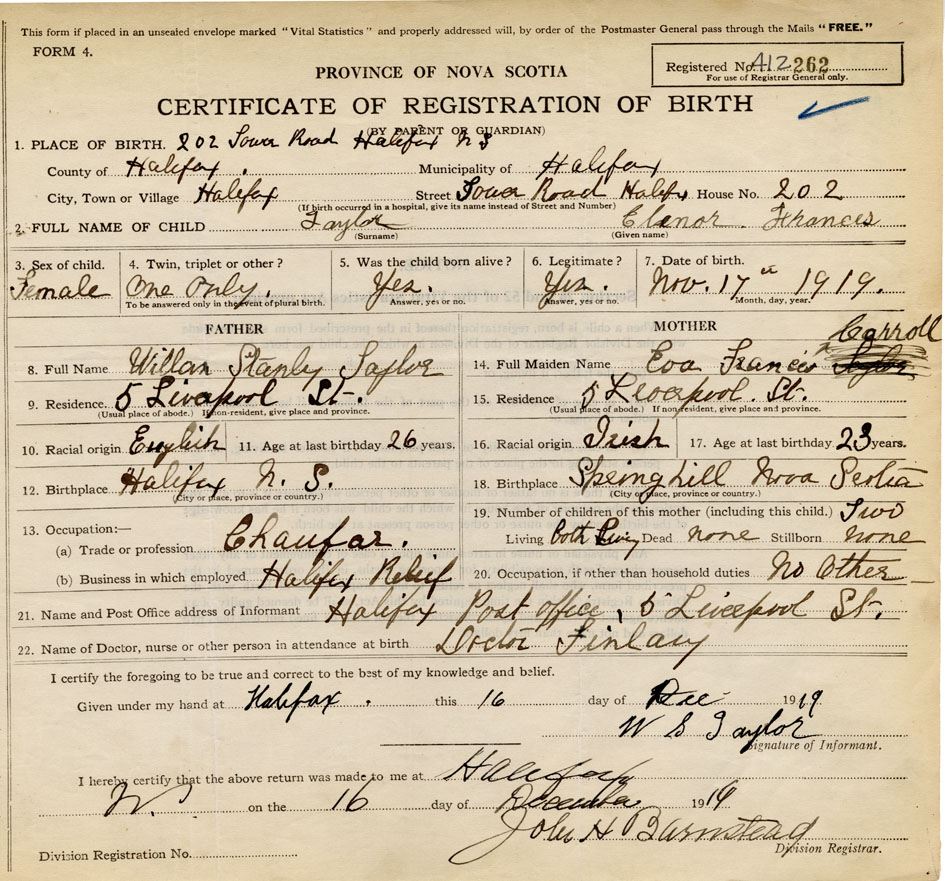 This form if placed in an unsealed envelope marked "Vital Statistics" and properly addressed will, by order of the Postmaster General pass through the Mails "FREE."
FORM 4.
Registered No. 412262
For use of Registrar General only.
PROVINCE OF NOVA SCOTIA
CERTIFICATE OF REGISTRATION OF BIRTH
(BY PARENT OR GUARDIAN)
1. PLACE OF BIRTH. 202 Tower Road Halifax N S
County of Halifax. Municipality of Halifax
City, Town or Village Halifax Street Tower Road Halifx House No. 202
(If birth occurred in a hospital, give its name instead of Street and Number)
2. FULL NAME OF CHILD Taylor Elenor Frances
(Surname) (Given name)
3. Sex of child. 4. Twin, triplet or other? 5. Was the child born alive? 6. Legitimate? 7. Date of birth.
Female One Only. Yes. Yes. Nov. 17th 1919.
To be answered only in the event of plural birth. Answer, yes or no. Answer, yes or no. Month, day, year.
FATHER
8. Full Name Willan Stanly Taylor
9. Residence. 5 Liverpool St.
(Usual place of abode.) If non-resident, give place and province.
10. Racial origin English 11. Age at last birthday 26 years.
12. Birthplace Halifax N. S.
(City or place, province or country.)
13. Occupation:—
(a) Trade or profession Chaufar.
(b) Business in which employed Halifax Relief
MOTHER
Carroll
14. Full Maiden Name Eva Francis Taylor
15. Residence 5 Liverpool. St.
(Usual place of abode.) If non-resident, give place and province.
16. Racial origin Irish 17. Age at last birthday 23 years.
18. Birthplace Springhill Nova Scotia
(City or place, province or country.)
19. Number of children of this mother (including this child.) Two
Living both Living Dead none Stillborn none
20. Occupation, if other than household duties No Other
21. Name and Post Office address of Informant Halifax Post office, 5 Liverpool St.
22. Name of Doctor, nurse or other person in attendance at birth Doctor Finlay
I certify the foregoing to be true and correct to the best of my knowledge and belief.
Given under my hand at Halifax. this 16 day of Dec 1919
W S Taylor
Signature of Informant.
I hereby certify that the above return was made to me at Halifax
on the 16 day of December 1919
John H Barnstead
Division Registration No. Division Registrar.